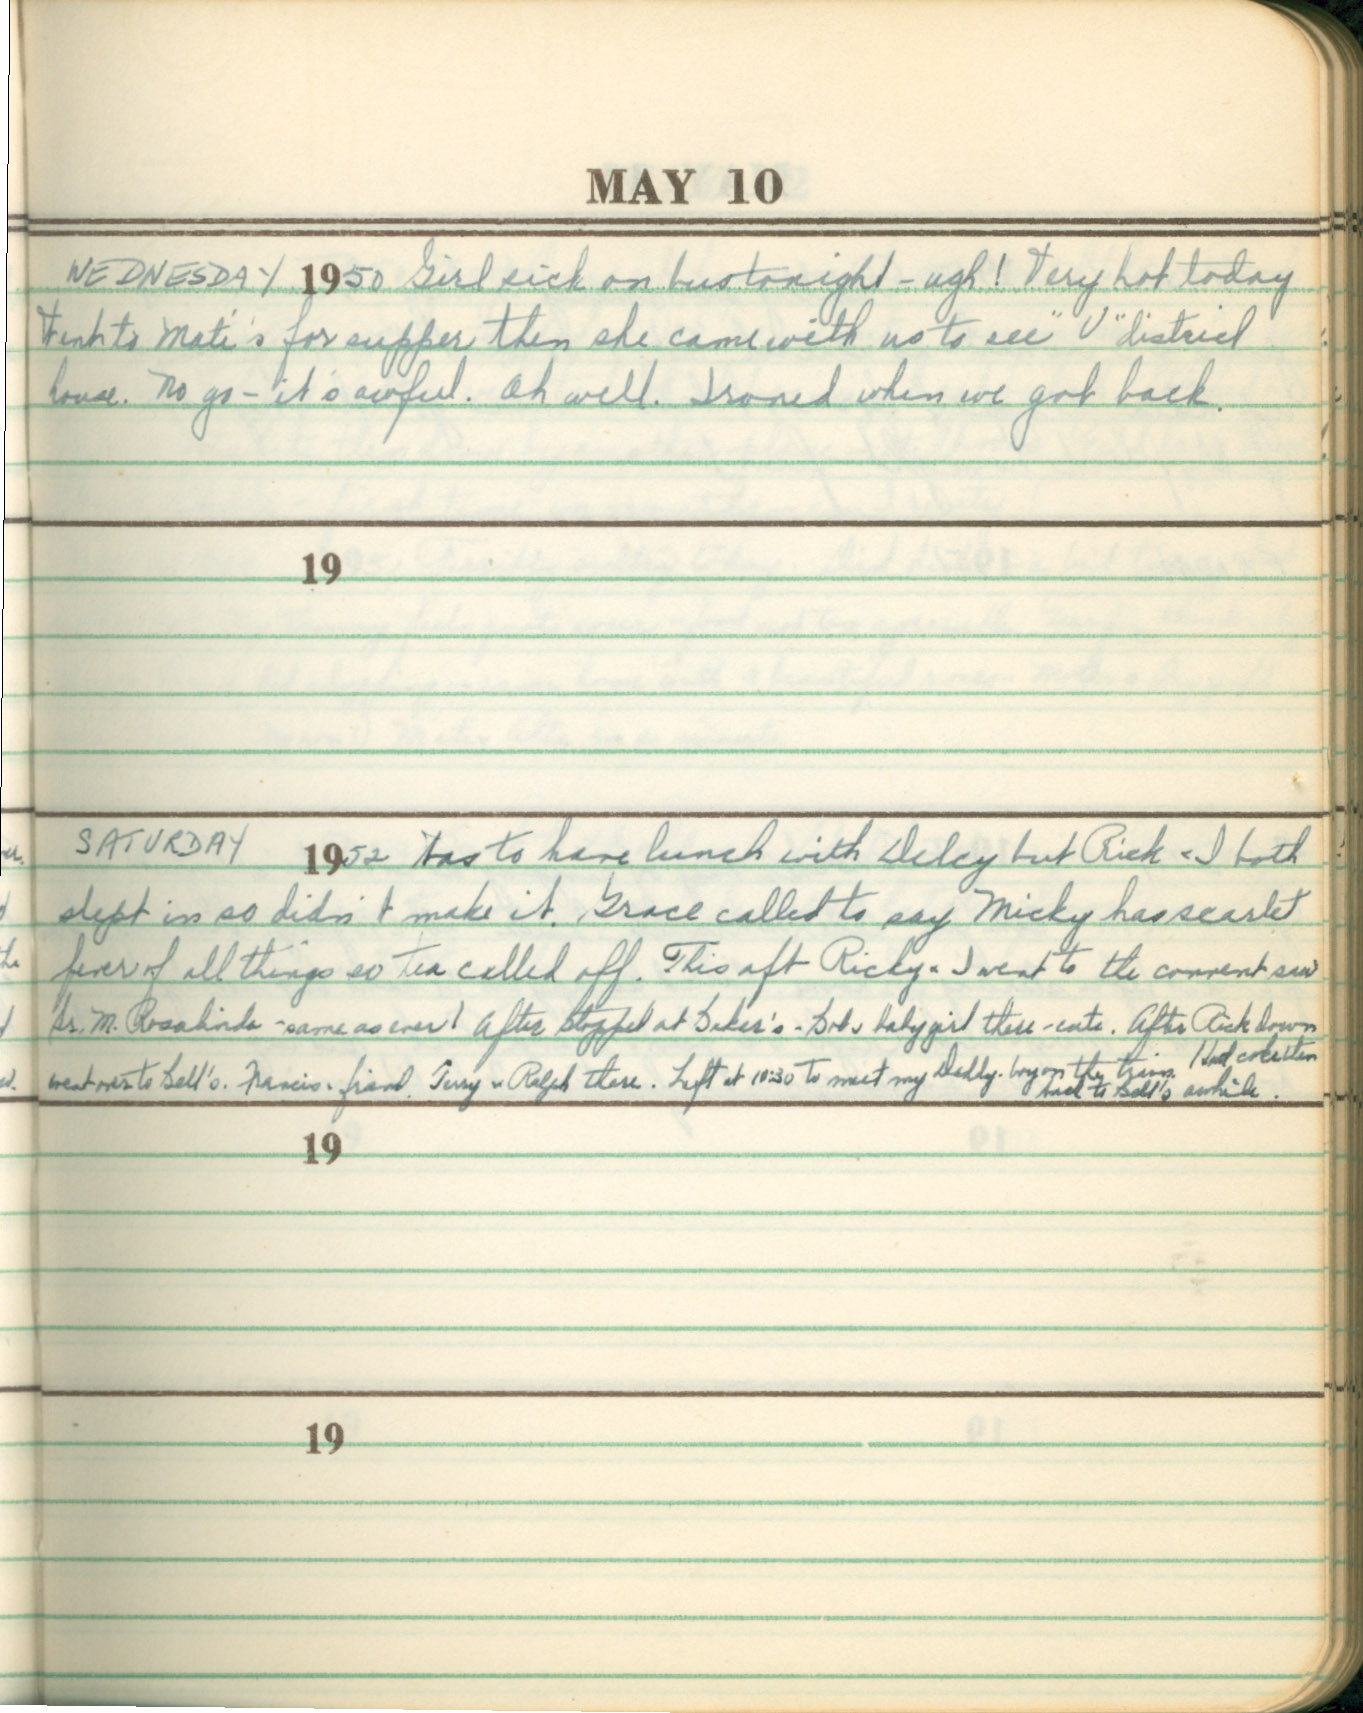 MAY 10
WEDNESDAY 1950 Girl sick on bus tonight - ugh! Very hot today
Went to Mate's for supper then she came with us to see "V" district
house. No go - it's awful. Oh well. Ironed when we got back.
19
SATURDAY 1952 Was to have lunch with Delcy but Rick & I both
slept in so didn't make it. Grace called to say Micky has scarlet
fever of all things so tea called off. This aft Ricky & I went to the convent saw
Sr. M. Rosalinda - same as ever! After stopped at Baker's - Bob & baby girl there - cute. After Rick down
went over to Bell's. Francis & friend, Terry & Ralph there. Left at 10:30 to meet my Daddy-boy on the train. Had coke then
back to Bell's awhile.
19
19